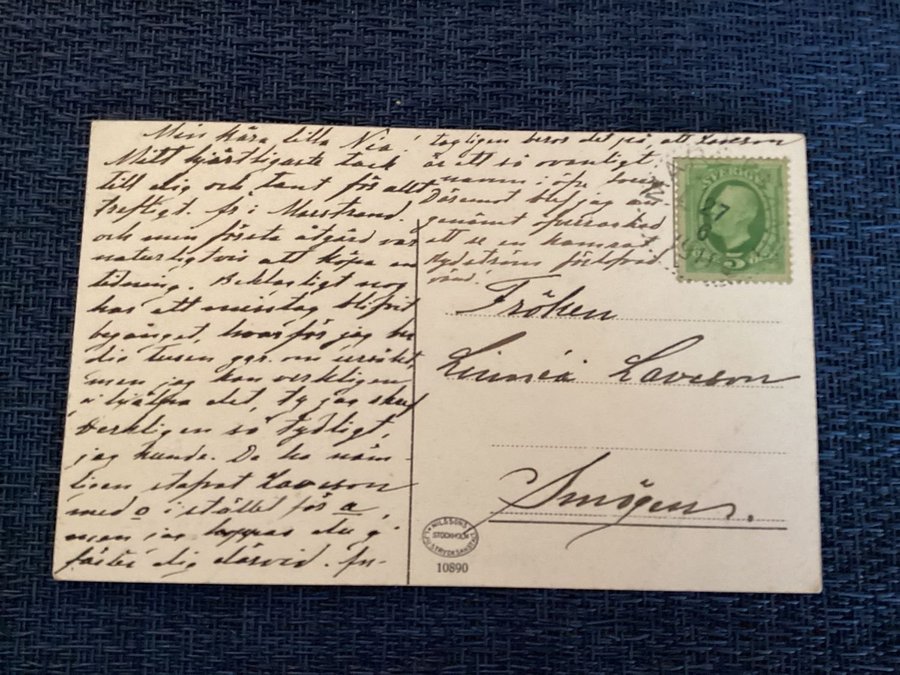 Min kära lilla Nea!
Mitt hjärtligaste tack
till dig och tant för allt
trefligt. fr i Marstrand.
och min första åtgärd var
naturligtvis att köpa en
tidning. Beklagligt nog
har ett misstag blifvit
begånget, hvarför jag ber
dig tusen ggr. om ursäkt,
men jag kan verkligen
ej hjälpa det, ty jag skref
verkligen så tydligt,
jag kunde. De ha näm-
ligen stafvat Laveson
med o i stället för a,
men jag hoppas du ej
fäster dig därvid.
togligen beror det på, att Laveson
är ett så ovanligt
namn i öfre
Däremot blef jag an-
genämt öfverraskad
att se en
Rydströms
Fröken
Linnéa Laveson
Smögen.
SVERIGE
5
27
NILSSONS
STOCKHOLM
LJUSTRYCKSANSTALT
10890